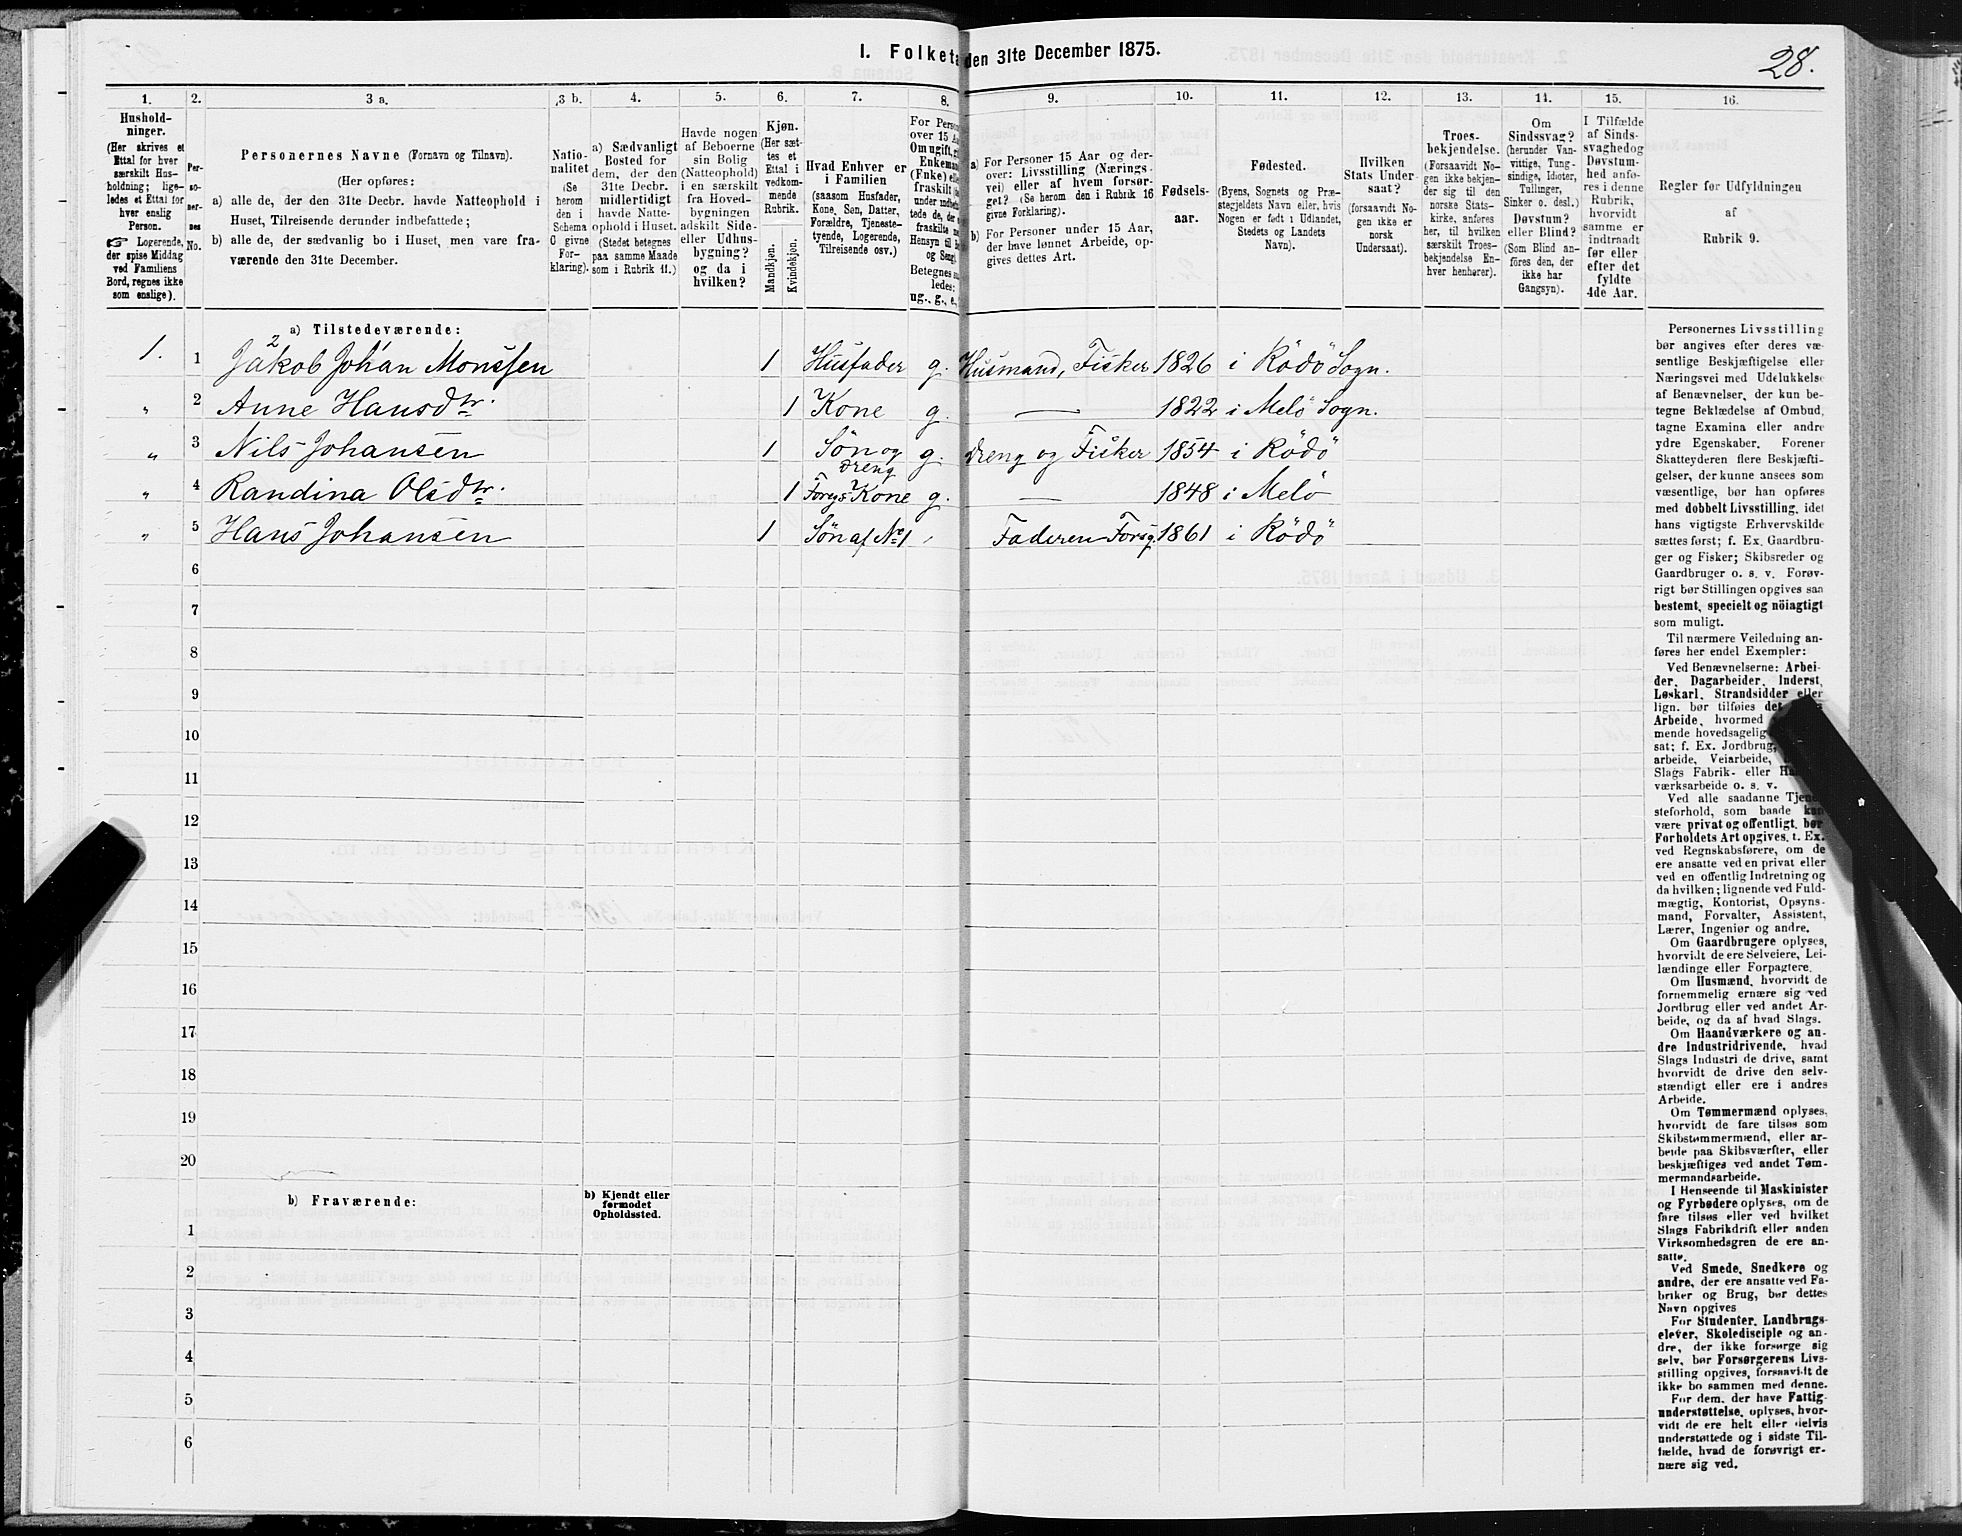 I. Folketæ
den 31te December 1875.
28.
1.
2.
3 a.
3 b.
4.
5.
6.
7.
8.
9.
10.
11.
12.
13.
14.
15.
16.
Hushold-
ninger.
(Her skrives et
Ettal for hver
særskilt Hus-
holdning; lige-
ledes et Ettal for
hver enslig
Person.
☞ Logerende,
der spise Middag
ved Familiens
Bord, regnes ikke
som enslige).
Per-
so-
ner-
nes
No.
Personernes Navne (Fornavn og Tilnavn).
(Her opføres:
a) alle de, der den 31te Decbr. havde Natteophold i
Huset, Tilreisende derunder indbefattede;
b) alle de, der sædvanlig bo i Huset, men vare fra-
værende den 31te December.
Natio-
nalitet
(Se
herom
den i
Schema
O givne
For-
klaring).
a) Sædvanligt
Bosted for
dem, der den
31te Decbr.
midlertidigt
havde Natte-
ophold i Huset.
(Stedet betegnes
paa samme Maade
som i Rubrik 11.)
Havde nogen
af Beboerne
sin Bolig
(Natteophold)
i en særskilt
fra Hoved-
bygningen
adskilt Side-
eller Udhus-
bygning?
og da i
hvilken?
Kjøn.
(Her sæt-
tes et
Ettal i
vedkom-
mende
Rubrik.
Mandkjøn.
Kvindekjøn.
Hvad Enhver er
i Familien
(saasom Husfader,
Kone, Søn, Datter,
Forældre, Tjeneste-
tyende, Logerende,
Tilreisende osv.)
For Person
over 15 A
Om ugift, g
Enkema
(Enke) elle
fraskilt
under indbe
tede de, der
fraskilte
Hensyn til B
og Seng
Betegnes s
ledes:
ug., g., e,
a) For Personer 15 Aar og der-
over: Livsstilling (Nærings-
vei) eller af hvem forsør-
get? (Se herom den i Rubrik 16
givne Forklaring).
b) For Personer under 15 Aar,
der have lønnet Arbeide, op-
gives dettes Art.
Fødsels-
aar.
Fødested.
(Byens, Sognets og Præ-
stegjeldets Navn eller, hvis
Nogen er født i Udlandet,
Stedets og Landets
Navn).
Hvilken
Stats Under-
saat?
(forsaavidt No-
gen ikke er
norsk
Undersaat).
Troes-
bekjendelse.
(Forsaavidt No-
gen ikke bekjen-
der sig til den
norske Stats-
kirke, anføres
her, til hvilken
særskilt Troes-
bekjendelse En-
hver henhører).
Om
Sindssvag?
(herunder Van-
vittige, Tung-
sindige, Idioter,
Tullinger,
Sinker o. desl.)
Døvstum?
eller Blind?
(Som Blind an-
føres den, der
ikke har
Gangsyn).
I Tilfælde
af Sinds-
svaghedog
Døvstum-
hed anfø-
res i denne
Rubrik,
hvorvidt
samme er
indtraadt
før eller
efter det
fyldte
4de Aar.
Regler før Udfyldningen
af
Rubrik 9.
a) Tilstedeværende:
1. 1 Jakob Johan Monssen 1 Husfader g. Husmand, Fisker 1826 i Rödö Sogn.
2
" 2 Anne Hansdtr. 1 Kone g. — 1822 i Melö Sogn.
" 3 Nils Johansen 1 Søn og dreng g. dreng og Fisker 1854 i Rödö
" 4 Randina Olsdtr. 1 Kone g. — 1848 i Melö
" 5 Hans Johansen 1 Søn af No 1 Faderen Forsg. 1861 i Rödö
6
7
8
9
10
11
12
13
14
15
16
17
18
19
20
b) Fraværende:
b) Kjendt eller
formodet
Opholdssted.
1
2
3
4
5
6
Personernes Livsstilling
bør angives efter deres væ-
sentlige Beskjæftigelse eller
Næringsvei med Udelukkelse
af Benævnelser, der kun be-
tegne Beklædelse af Ombud,
tagne Examina eller andre
ydre Egenskaber. Forener
Skatteyderen flere Beskjæfti-
gelser, der kunne ansees som
væsentlige, bør han opføres
med dobbelt Livsstilling, idet
hans vigtigste Erhvervskilde
sættes først; f. Ex. Gaardbru-
ger og Fisker; Skibsreder og
Gaardbruger o. s. v. Forøv-
rigt bør Stillingen opgives saa
bestemt, specielt og nöiagtigt
som muligt.
Til nærmere Veiledning an-
føres her endel Exempler:
Ved Benævnelserne: Arbei-
der, Dagarbeider, Inderst,
Løskarl, Strandsidder eller
lign. bør tilføies det
Arbeide, hvormed
mende hovedsagelig
sat; f. Ex. Jordbrug,
arbeide, Veiarbeide,
Slags Fabrik- eller
værksarbeide o. s. v.
Ved alle saadanne Tjene-
steforhold, som baade kan
være privat og offentligt, bør
Forholdets Art opgives, t. Ex.
ved Regnskabsførere, om de
ere ansatte ved en privat eller
ved en offentlig Indretning og
da hvilken; lignende ved Fuld-
mægtig, Kontorist, Opsyns-
mand, Forvalter, Assistent,
Lærer, Ingeniør og andre.
Om Gaardbrugere oplyses,
hvorvidt de ere Selveiere, Lei-
lændinge eller Forpagtere.
Om Husmænd, hvorvidt de
fornemmelig ernære sig ved
Jordbrug eller ved andet Ar-
beide, og da af hvad Slags.
Om Haandværkere og an-
dre Industridrivende, hvad
Slags Industri de drive, samt
hvorvidt de drive den selv-
stændigt eller ere i andres
Arbeide.
Om Tømmermænd oplyses,
hvorvidt de fare tilsøs som
Skibstømmermænd, eller ar-
beide paa Skibsværfter, eller
beskjæftiges ved andet Tøm-
mermandsarbeide.
I Henseende til Maskinister
og Fyrbødere oplyses, om de
fare tilsøs eller ved hvilket
Slags Fabrikdrift eller anden
Virksomhedsgren de ere an-
satte.
Ved Smede, Snedkere og
andre, der ere ansatte ved Fa-
briker og Brug, bør dettes
Navn opgives
For Studenter, Landbrugs-
elever, Skoledisciple og an-
dre, der ikke forsørge sig
selv, bør Forsørgerens Livs-
stilling opgives, forsaavidt de
ikke bo sammen med denne.
For dem, der have Fattig-
understøttelse, oplyses, hvor-
vidt de ere helt eller delvis
understøttede og i sidste Til-
fælde, hvad de forøvrigt er-
nære sig ved.